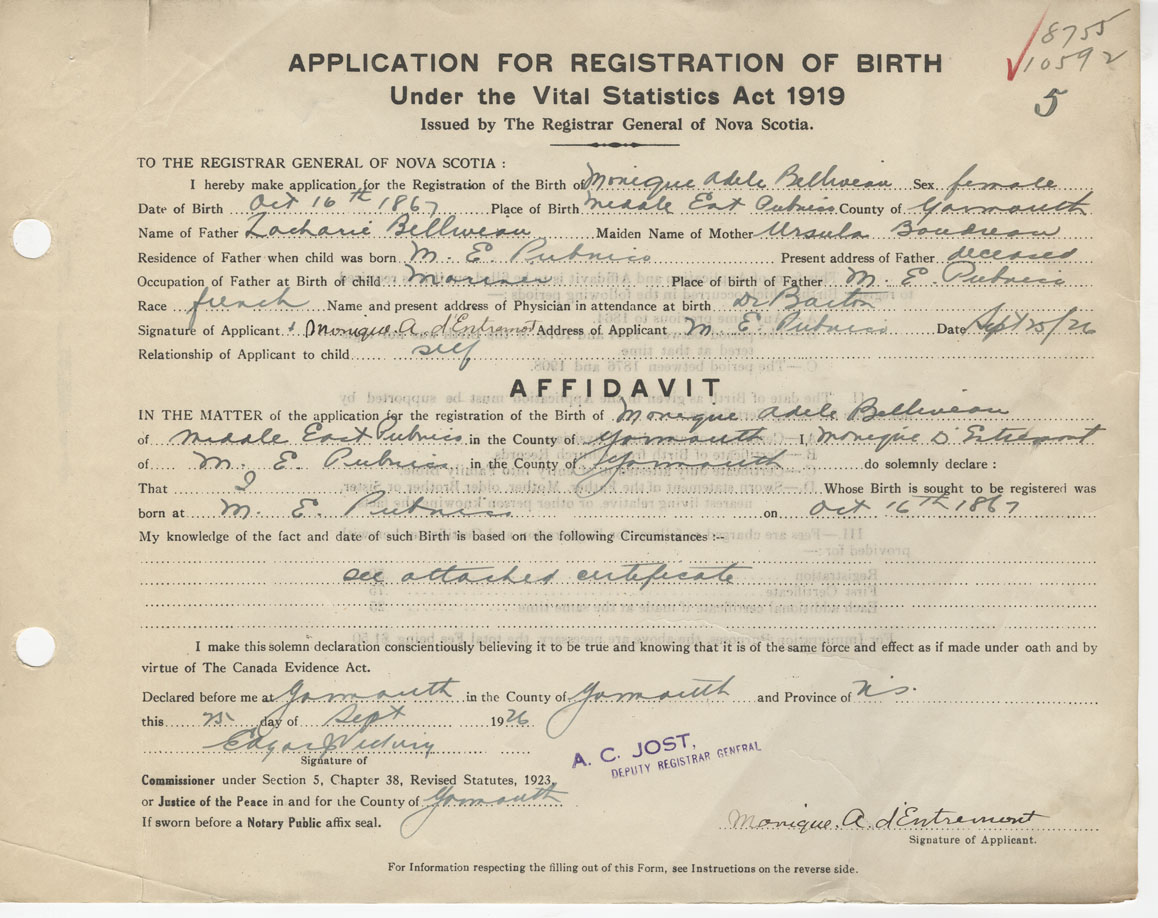 8755
10592
5
APPLICATION FOR REGISTRATION OF BIRTH
Under the Vital Statistics Act 1919
Issued by The Registrar General of Nova Scotia.
TO THE REGISTRAR GENERAL OF NOVA SCOTIA :
I hereby make application for the Registration of the Birth of Monique Adele Belliveau Sex female
Date of Birth Oct 16th 1867 Place of Birth Middle East Pubnico County of Yarmouth
Name of Father Zacharie Belliveau Maiden Name of Mother Ursula Boudreau
Residence of Father when child was born M. E. Pubnico Present address of Father deceased
Occupation of Father at Birth of child Mariner Place of birth of Father M. E. Pubnico
Race french Name and present address of Physician in attendance at birth Dr Barton
Signature of Applicant Monique. A. d'Entremont Address of Applicant M. E. Pubnico Date Sept 25/26
Relationship of Applicant to child self
AFFIDAVIT
IN THE MATTER of the application for the registration of the Birth of Monique Adele Belliveau
of Middle East Pubnico in the County of Yarmouth I, Monique D'Entremont
of M. E. Pubnico in the County of Yarmouth do solemnly declare :
That I Whose Birth is sought to be registered was
born at M. E. Pubnico on Oct 16th 1867
My knowledge of the fact and date of such Birth is based on the following Circumstances :--
see attached certificate
I make this solemn declaration conscientiously believing it to be true and knowing that it is of the same force and effect as if made under oath and by
virtue of The Canada Evidence Act.
Declared before me at Yarmouth in the County of Yarmouth and Province of N.S.
this 25 day of Sept 1926
Edgar
Signature of
A. C. JOST,
DEPUTY REGISTRAR GENERAL
Commissioner under Section 5, Chapter 38, Revised Statutes, 1923,
or Justice of the Peace in and for the County of Yarmouth
If sworn before a Notary Public affix seal.
Monique. A. d'Entremont
Signature of Applicant.
For Information respecting the filling out of this Form, see Instructions on the reverse side.